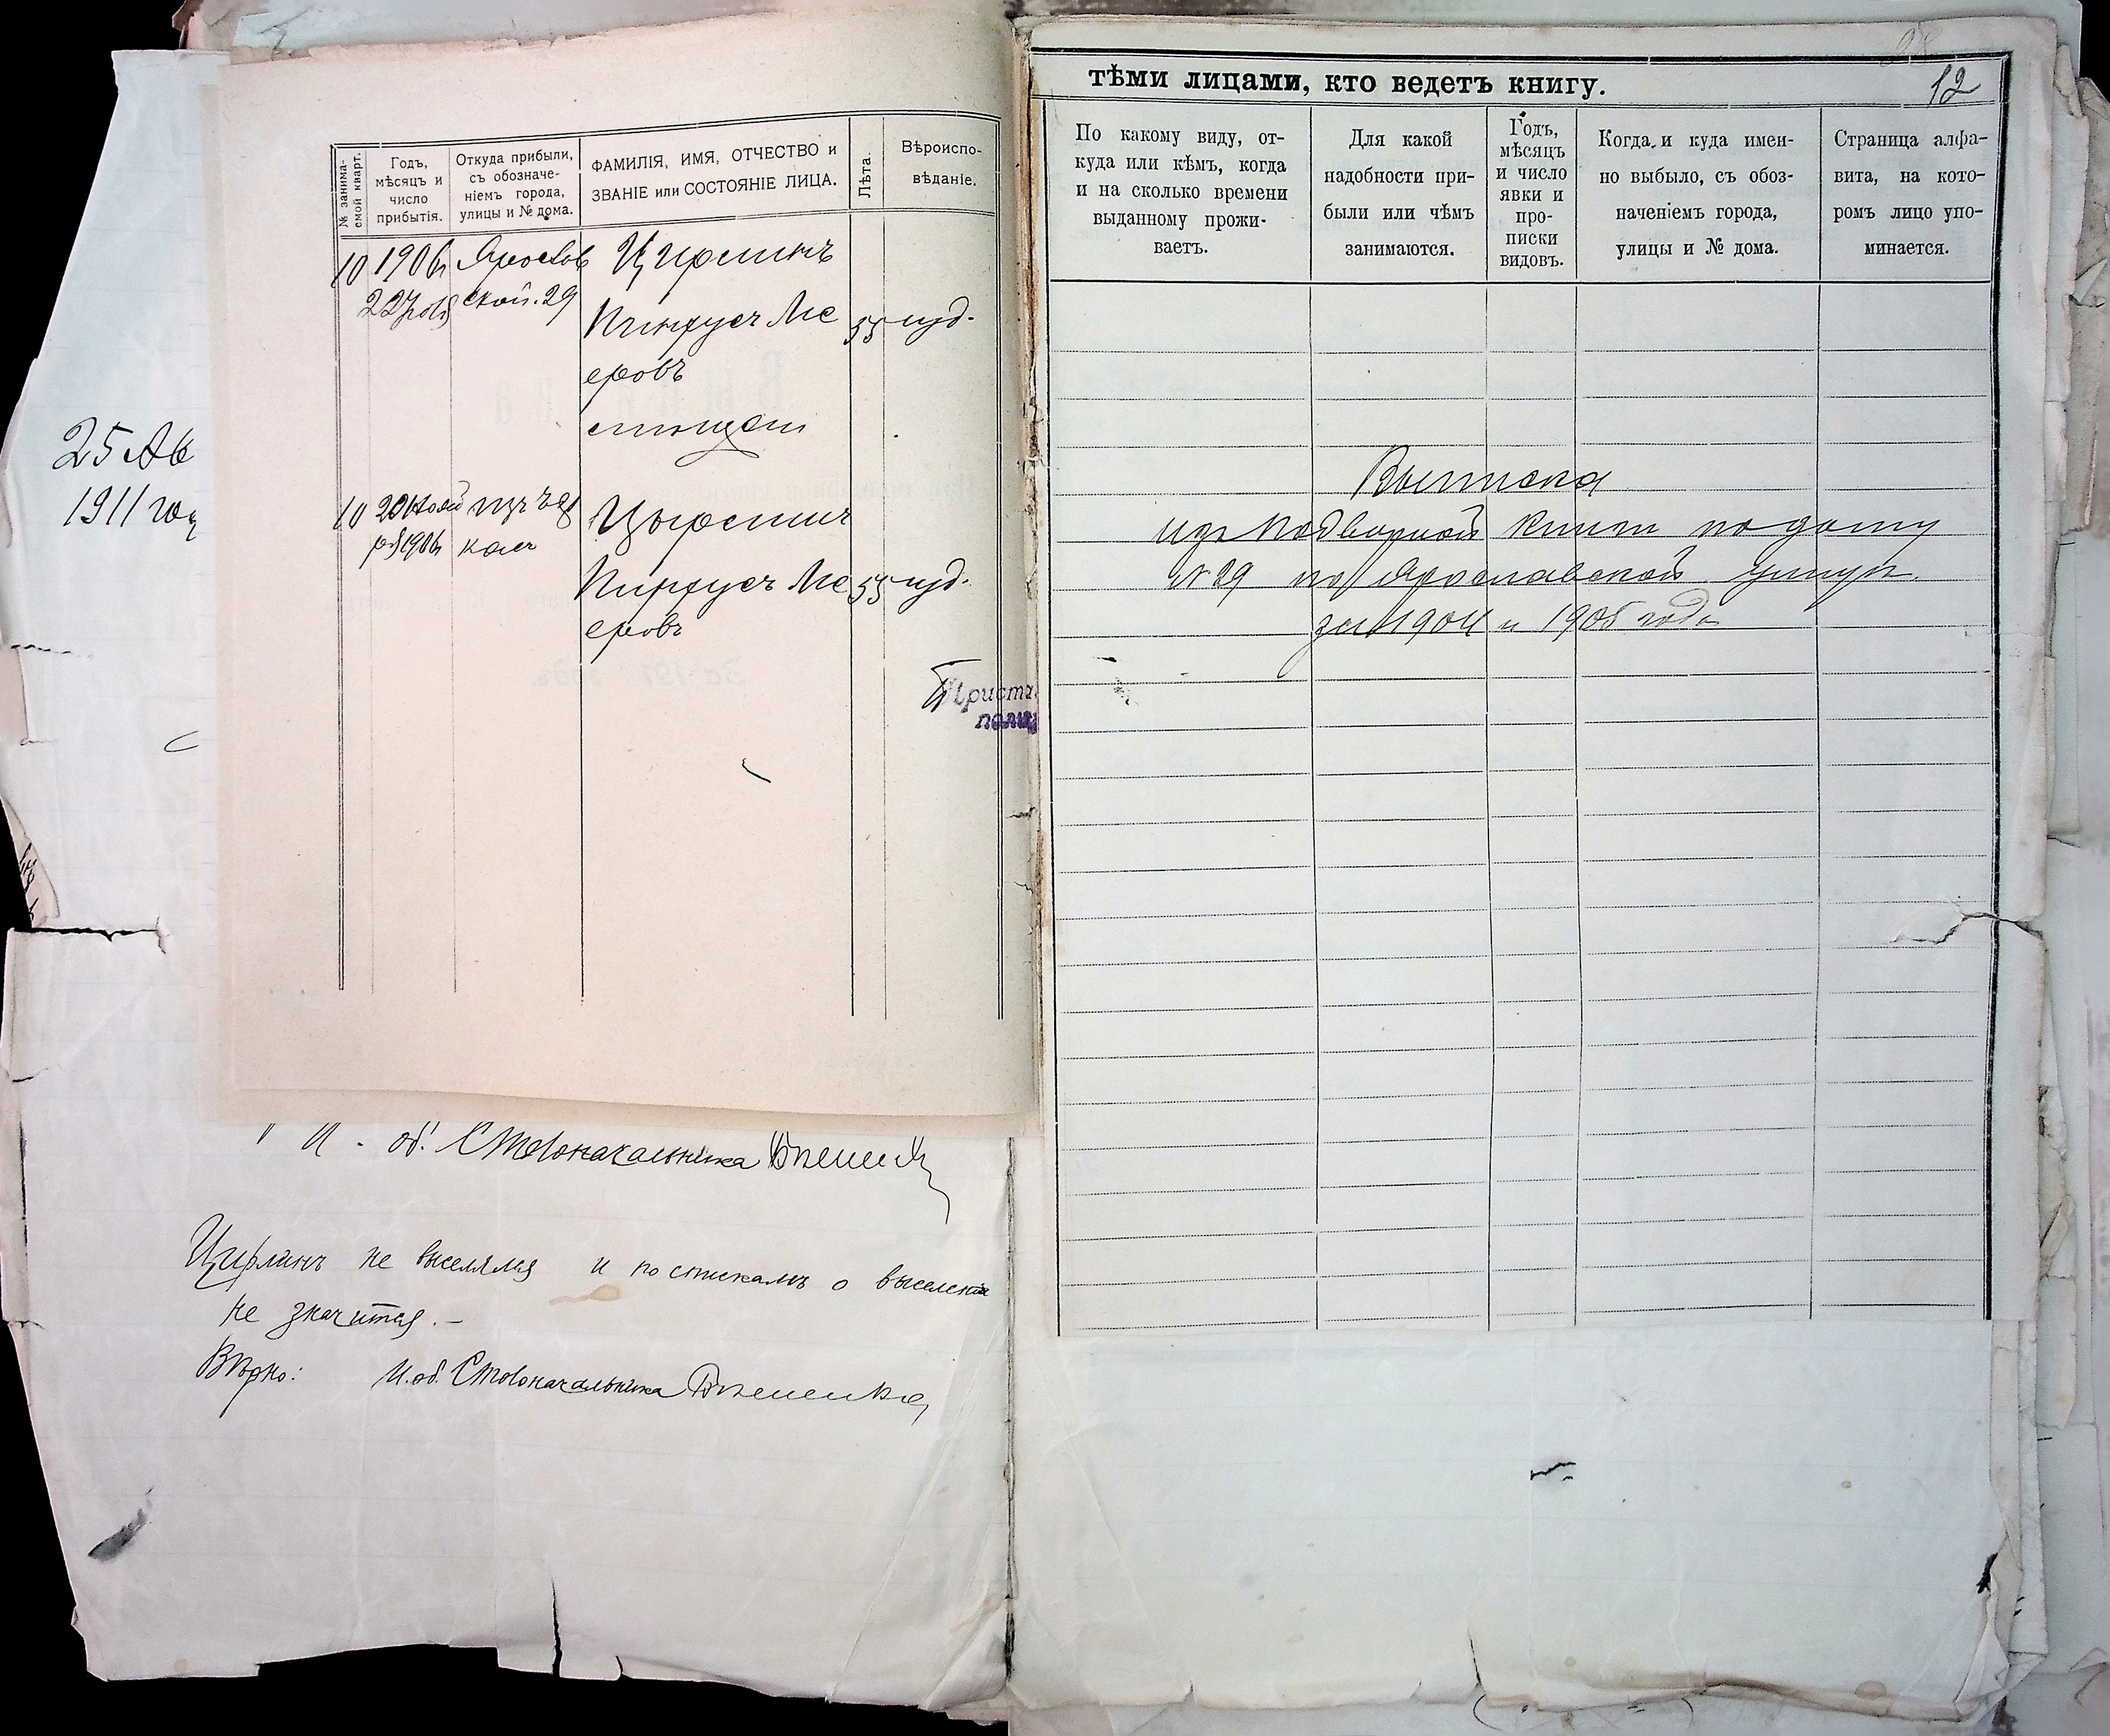 25 Ав
1911 год
№ занима-
емой кварт.
Годъ,
мѣсяцъ и
число
прибытія.
Откуда прибыли,
съ обозначе-
ніемъ города,
улицы и № дома.
ФАМИЛІЯ, ИМЯ, ОТЧЕСТВО и
ЗВАНІЕ или СОСТОЯНІЕ ЛИЦА.
Лѣта.
Вѣроиспо-
вѣданіе.
10 1906г Яросlав Цирлинъ
ской. 29
Пинхусъ Ме 55 іуд.
еровъ
мѣщан
10 20 Нояб
ря 1906г
Цырлинъ
Пинхусъ Ме 55 іуд.
еровъ
Приста
поли
И. об. Столоначальника
Цирлинъ не выселялся и по спискамъ о выселеніи
не значится. —
Вѣрно: И. об. Столоначальника
тѣми лицами, кто ведетъ книгу.
12
По какому виду, от-
куда или кѣмъ, когда
и на сколько времени
выданному прожи-
ваетъ.
Для какой
надобности при-
были или чѣмъ
занимаются.
Годъ,
мѣсяцъ
и число
явки и
про-
писки
видовъ.
Когда и куда имен-
но выбыло, съ обоз-
наченіемъ города,
улицы и № дома.
Страница алфа-
вита, на кото-
ромъ лицо упо-
минается.
Выписка
изъ подворной книги по дому
№ 29 по Ярославской улицѣ
за 1904 и 1905 годъ